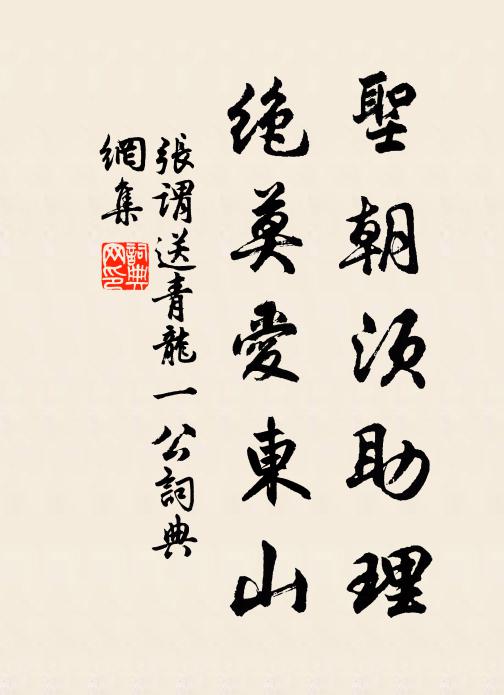 聖朝須助理
絶莫愛東山
張謂送青龍一公詞典
網集
詞典
网印